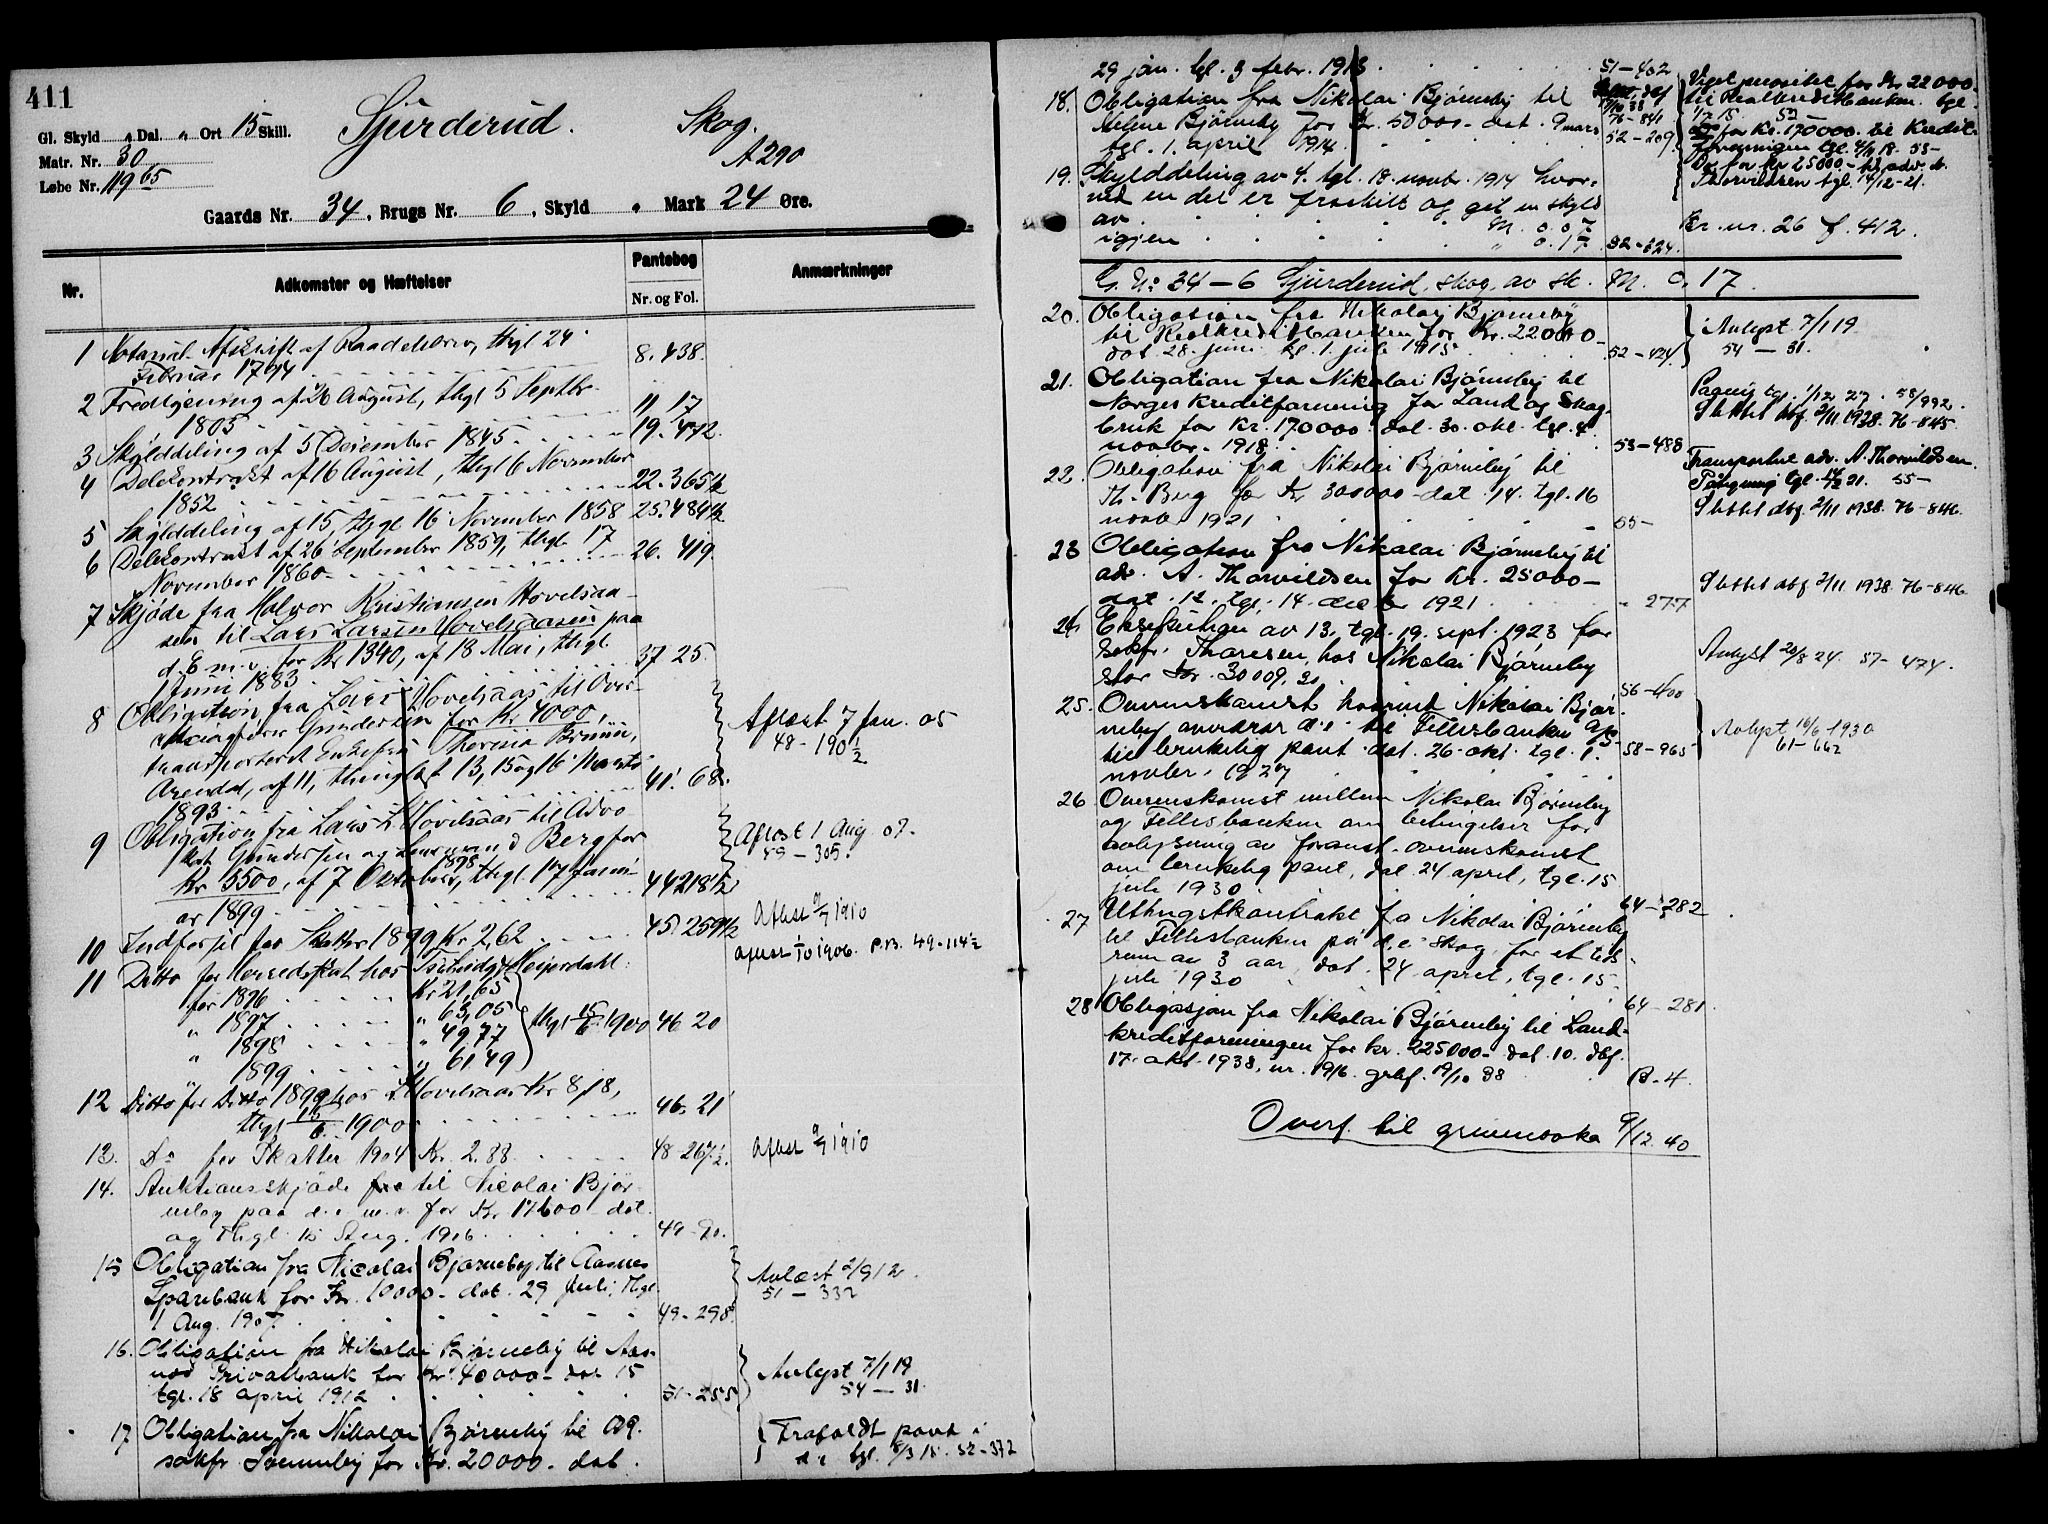 411
Gl. Skyld „ Dal. „ Ort 15 Skill.
Sjurderud. Skog.
Matr. Nr. 30
A 290
Løbe Nr. 119 65
Gaards Nr. 34, Brugs Nr. 6, Skyld „ Mark 24 Øre.
Nr.
Adkomster og Hæftelser
Pantebog
Nr. og Fol.
Anmærkninger
1 Notarial-Afskrift af thgl 24
Februar 1794 8. 438.
2 Fredlysning af 26 August, thgl 5 Septbr
1805 11 17
3 Skylddeling af 5 December 1845 19. 472.
4 Delekontrakt af 16 August, thgl 6 November
1852 22. 365½
5 Skylddeling af 15, thgl 16 November 1858 25. 489½
6 Delekontrakt af 26 September 1859, thgl 17
November 1860 26. 419.
7 Skjøde fra Halvor Kristiansen Hovelsaa-
sen til Lars Larsen Hovelsaasen paa
d. E m. v. for Kr 1340, af 18 Mai, thgl
1 Juni 1883 37 25.
8 Obligation fra Lars Hovelsaas til Over-
Gundersen for Kr 4000,
transporteret Enkefru Brunn,
Arendal, af 11, thinglæst 13, 15 og 16 Marts
1893 41. 68.
Aflæst 7 Jan. 05
48 - 190½
9 Obligation fra Lars L. Hovelsaas til Advo
kat Gundersen og Lensmand Berg for
Kr 5500, af 7 Oktober 1898, thgl 17 Janu-
ar 1899 44 218½
Aflæst 1 Aug. 07.
49 - 305.
10 Indførsel for Skatter 1899 Kr. 2,62 45. 259½
Aflæst 9/7 1910
11 Ditto for Herredsskat hos Heyerdahl
for 1896 Kr 21,65
„ 1897 „ 63,05
„ 1898 „ 49,77
„ 1899 „ 61 49
thgl 15/6 1900 46 20
Aflæst 1/10 1906. P.B. 49-114½
12 Ditto for Ditto 1899 hos L Hovelsaas Kr 8,18,
thgl 15/6 1900 46. 21
13. Do for Skatter 1904 Kr. 2.88 48 267½.
Aflæst 9/7 1910
14. Auktionsskjøde fra til Nicolai Bjør-
neby paa d. e m. v. for Kr 17600 dat.
og thgl. 15 Aug. 1906 49-90.
15 Obligation fra Nicolai Bjørneby til Aasnes
Sparebank for Kr. 10000 - dat. 29 Juli, thgl
1 Aug. 1907. 49-298.
Avlæst 2/9 12.
51 - 332
16. Obligation fra Nikolai Bjørneby til Aas-
nes Privatbank for Kr. 40000 - dat 15
tgl. 18 april 1912 51-255
Avlyst 7/1 19
54 - 31.
17 Obligation fra Nikolai Bjørneby til O.r.
sakfr Svenneby for Kr. 20000 - dat.
Frafaldt pant i
d. e tgl. 5/3 15. 52-372
29 jan. tgl. 3 febr. 1913 51-402
18. Obligation fra Nikolai Bjørneby til
Helene Bjørneby for Kr. 50000 - dat. 9 mars
tgl. 1. april 1914. 52-209
76-841
Viget prioritet for Kr. 22000
til Realkreditbanken tgl.
1/7 15 52-
Do for Kr. 170000. til Kredit-
foreningen tgl. 4/11 18. 53-
Do for Kr 25000 - til adv. A.
Thorvildsen tgl. 14/12-21.
19. Skylddeling av 4. tgl. 18. novbr. 1914 hvor-
ved en del er fraskilt og git en skyld
av M. 0.07
igjen „ 0.17 52-324.
Br. nr. 26 f. 412.
G. Nr. 34 - 6 Sjurderud, skog, av sk. M. 0,17.
20. Obligation fra Nikolai Bjørneby
til Realkreditbanken for Kr. 22000-
dat. 28. juni tgl. 1. juli 1915. 52-424
Avlyst 7/1 19
54 - 31.
21. Obligation fra Nikolai Bjørneby til
Norges Kreditforening for Land og Skog-
bruk for Kr. 170000. dat. 30. okt. tgl. 4.
novbr. 1918 53-488
Paateg. tgl. 1/12 27. 58/992.
Slettet dbf 2/11 1938. 76-845
22. Obligation fra Nikolai Bjørneby til
Th. Berg for Kr 300000 - dat. 14. tgl. 16
novbr 1921 55-
Transportert adv. A. Thorvildsen.
Paategning tgl. 14/12 21. 55-
Slettet dbf. 2/11 1938. 76-846.
23 Obligation fra Nikolai Bjørneby til
adv. A. Thorvildsen for Kr. 25000-
dat. 12. tgl. 14. decbr 1921 - 277
Slettet dbf 2/11 1938. 76-846.
24. Eksekution av 13. tgl. 19. sept. 1923 for
sakfr. Thoresen, hos Nikolai Bjørneby
stor Kr. 30009,30 56-400
Avlyst 20/8 24. 57-474.
25. Overenskomst hvorved Nikolai Bjør-
neby overdrar d. e. til Fellesbanken A/S
til brukelig pant dat. 26. okt. tgl. 1.
novbr. 1927 58-965
Avlyst 16/6 1930
61-662
26 Overenskomst mellem Nikolai Bjørneby
og Fellesbanken om betingelser for
avlysning av foranst. overenskomst
om brukelig pant, dat 24 april, tgl. 15
juli 1930 64-282
27 Uthugstkontrakt fra Nikolai Bjørneby
til Fellesbanken på d. e. skog for et tids-
rum av 3 aar, dat. 24 april, tgl. 15.
juli 1930 64-281.
28 Obligasjon fra Nikolai Bjørneby til Land-
kreditforeningen for kr. 225000 - dat. 10. dbf.
17. okt. 1938, nr. 1916. grbf. 19/10 38 B-4.
Overf. til grunnboka 9/12. 40